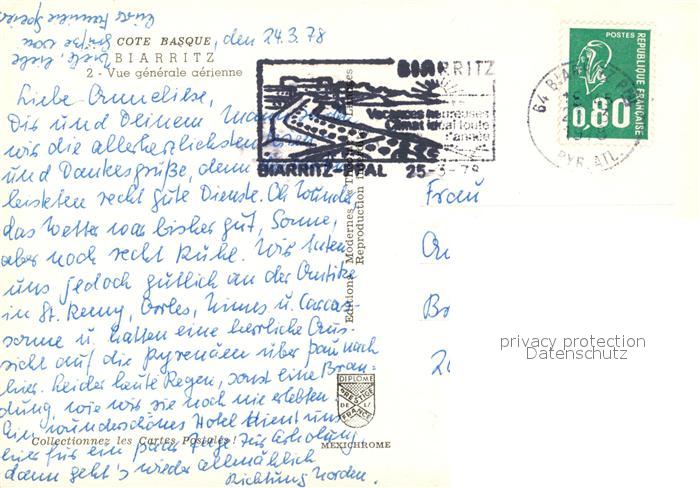 COTE BASQUE, den 24.3.78
BIARRITZ
2 - Vue générale aérienne
Liebe Anneliese,
Dir und Deinem Mann
wir die allerherzlichsten
und Dankesgrüße, denn
leisteten recht gute Dienste. Ob
das Wetter war bisher gut, Sonne,
aber noch recht kühl. Wir taten
uns jedoch gütlich an der Antike
in St. Remy, Arles, Nimes u. Carcas-
sonne u. hatten eine herrliche Aus-
sicht auf die Pyrenäen über Pau nach
hier. Leider heute Regen, sonst eine Bran-
dung, wie wir sie noch nie erlebten.
Ein wunderschönes Hotel dient uns
hier für ein paar Tage zur Erholung
dann geht's wieder allmählich
Richtung Norden.
Collectionnez les Cartes Postales!
Editions Modernes
Reproduction
DIPLOME
PRESTIGE
DE LA
FRANCE
MEXICHROME
BIARRITZ
Vacances heureuses
Climat idéal toute
l'année
BIARRITZ-PPAL 25-3-78
POSTES
REPUBLIQUE FRANÇAISE
0,80
64 BIARRITZ
PYR. ATL.
Frau
privacy protection
Datenschutz